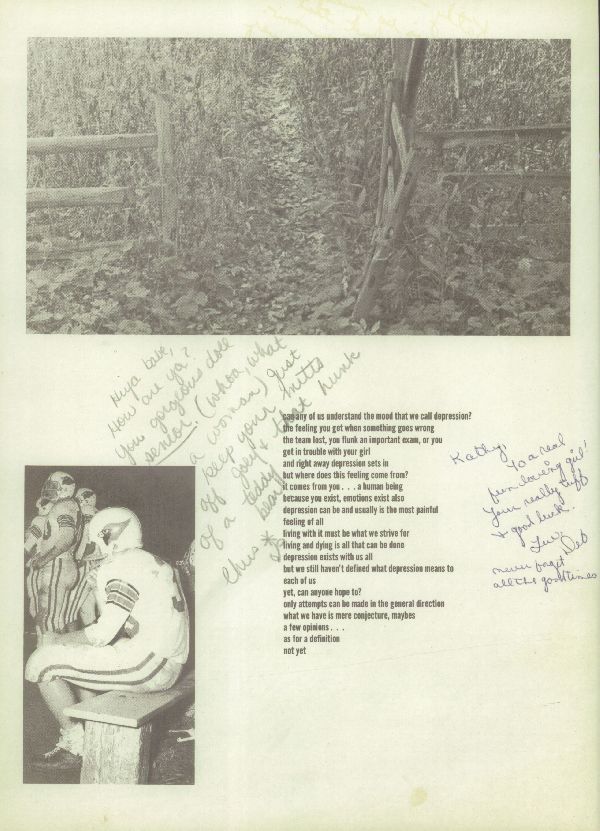 Hiya babe,
How are ya?
You gorgeous doll
senior. (whoa, what
a woman) Just
keep your mitts
off Joey + that hunk
of a teddy
bear
Chris
can any of us understand the mood that we call depression?
the feeling you get when something goes wrong
the team lost, you flunk an important exam, or you
get in trouble with your girl
and right away depression sets in
but where does this feeling come from?
it comes from you . . . a human being
because you exist, emotions exist also
depression can be and usually is the most painful
feeling of all
living with it must be what we strive for
living and dying is all that can be done
depression exists with us all
but we still haven't defined what depression means to
each of us
yet, can anyone hope to?
only attempts can be made in the general direction
what we have is mere conjecture, maybes
a few opinions . . .
as for a definition
not yet
Kathy,
To a real
fun loving girl!
Your really tuff
+ good luck.
Luv,
Deb
never forget
all the good times